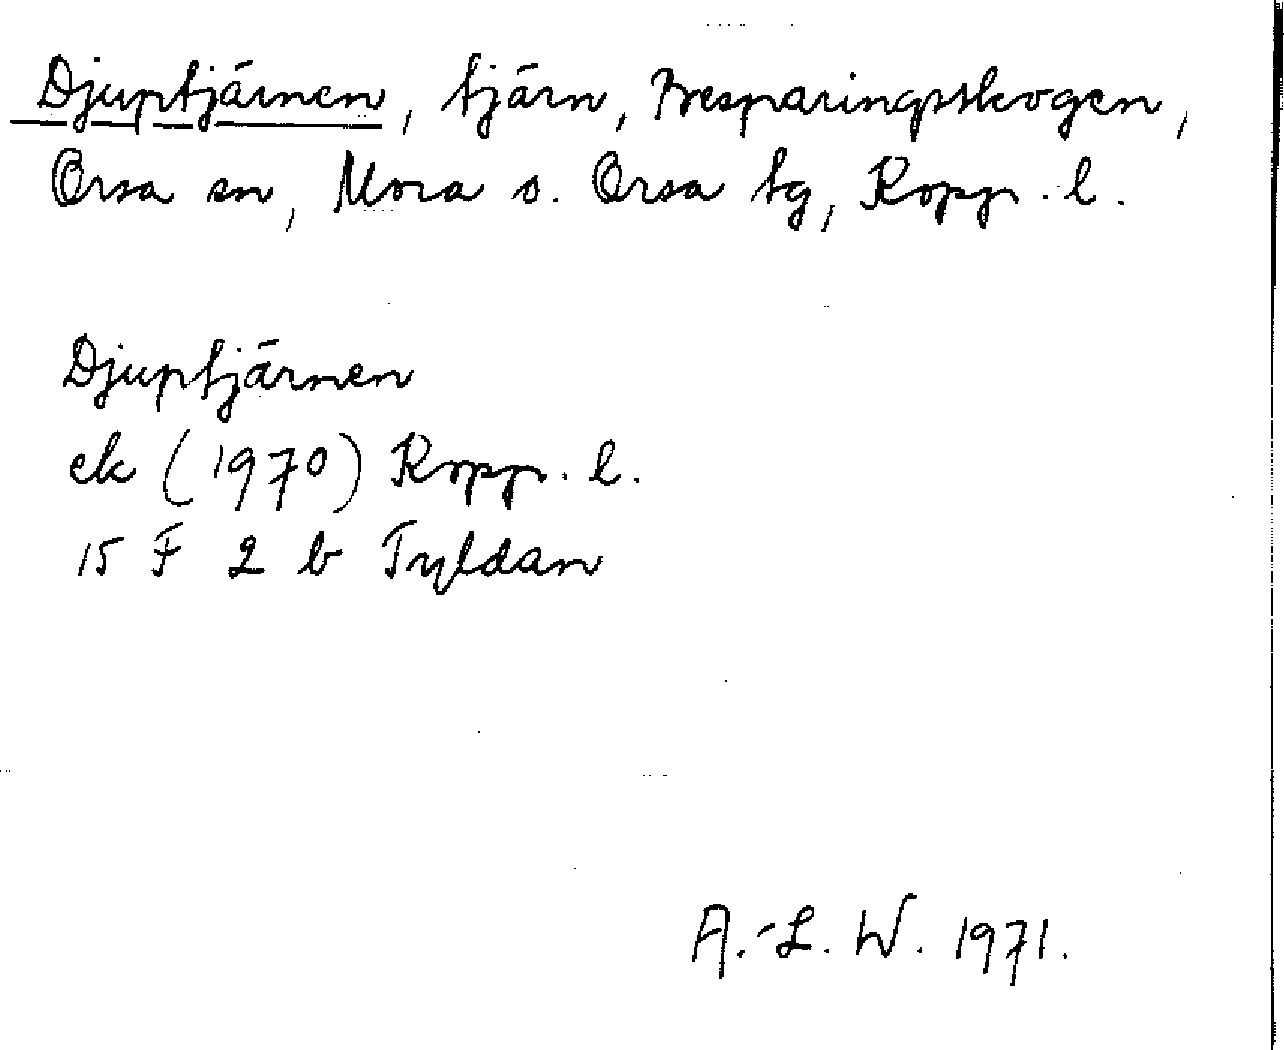 Djuptjärnen, tjärn, Besparingsskogen,
Orsa sn, Mora o. Orsa tg, Kopp. l.
Djuptjärnen
ek (1970) Kopp. l.
15 F 2 b Tyldan
A.-L. W. 1971.